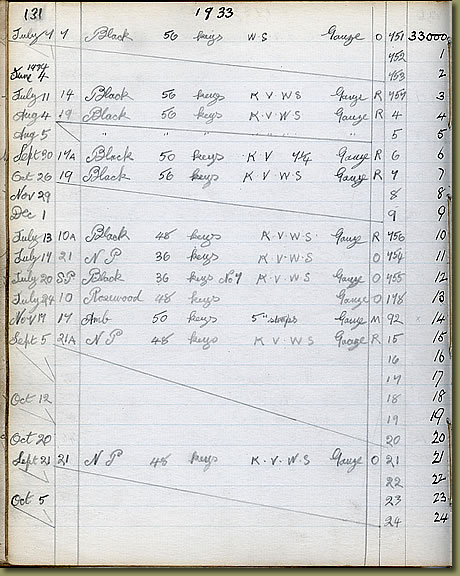 131 1933
July 4 7 Black 56 keys W S Gauze O 451 33000
452 1
June 4 1934 453 2
July 11 14 Black 56 keys K V W S Gauze R 457 3
Aug 4 19 Black 56 keys K V W S Gauze R 4 4
Aug 5 " " " " 5 5
Sept 30 17A Black 50 keys K V Gauze R 6 6
Oct 26 19 Black 56 keys K V W S Gauze R 7 7
Nov 29 8 8
Dec 1 9 9
July 13 10A Black 48 keys K. V. W S. Gauze R 456 10
July 17 21 N P 36 keys K V W S Gauze O 454 11
July 20 S.P Black 36 keys No 7 K V W S Gauze O 455 12
July 24 10 Rosewood 48 keys Gauze O 178 13
Nov 17 17 Amb 50 keys 5" Gauze M 92 14
Sept 5 21A N P 48 keys K V W S Gauze R 15 15
16 16
17 17
Oct 12 18 18
19 19
Oct 20 20 20
Sept 21 21 N P 48 keys K. V. W. S Gauze O 21 21
22 22
Oct 5 23 23
24 24